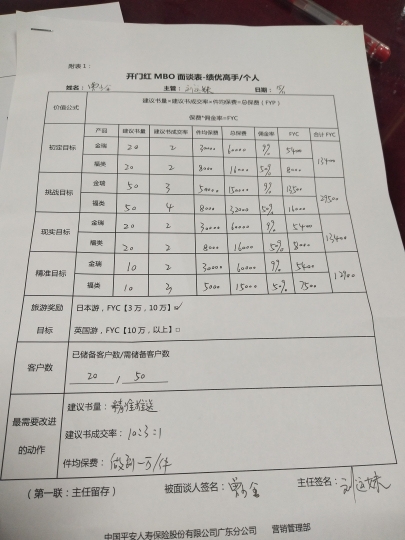 附表1：
开门红 MBO 面谈表-绩优高手/个人
姓名： 主管： 日期：
价值公式 建议书量*建议书成交率*件均保费=总保费（FYP）
保费*佣金率=FYC
产品 建议书量 建议书成交率 件均保费 总保费 佣金率 FYC 合计 FYC
初定目标 金瑞 20 2 30000 60000 9% 5400 13400
福类 20 2 8000 16000 50% 8000
挑战目标 金瑞 50 3 50000 150000 9% 13500 29500
福类 50 4 8000 32000 50% 16000
现实目标 金瑞 20 2 30000 60000 9% 5400 13400
福类 20 2 8000 16000 50% 8000
精准目标 金瑞 10 2 30000 60000 9% 5400 12900
福类 10 3 5000 15000 50% 7500
旅游奖励 日本游，FYC【3 万，10 万】☑
目标 英国游，FYC【10 万，以上】□
客户数 已储备客户数/需储备客户数
20 / 50
最需要改进 建议书量：精准筛选
的动作 建议书成交率：10:3:1
件均保费：做到一万/件
（第一联：主任留存） 被面谈人签名： 主任签名：
中国平安人寿保险股份有限公司广东分公司 营销管理部